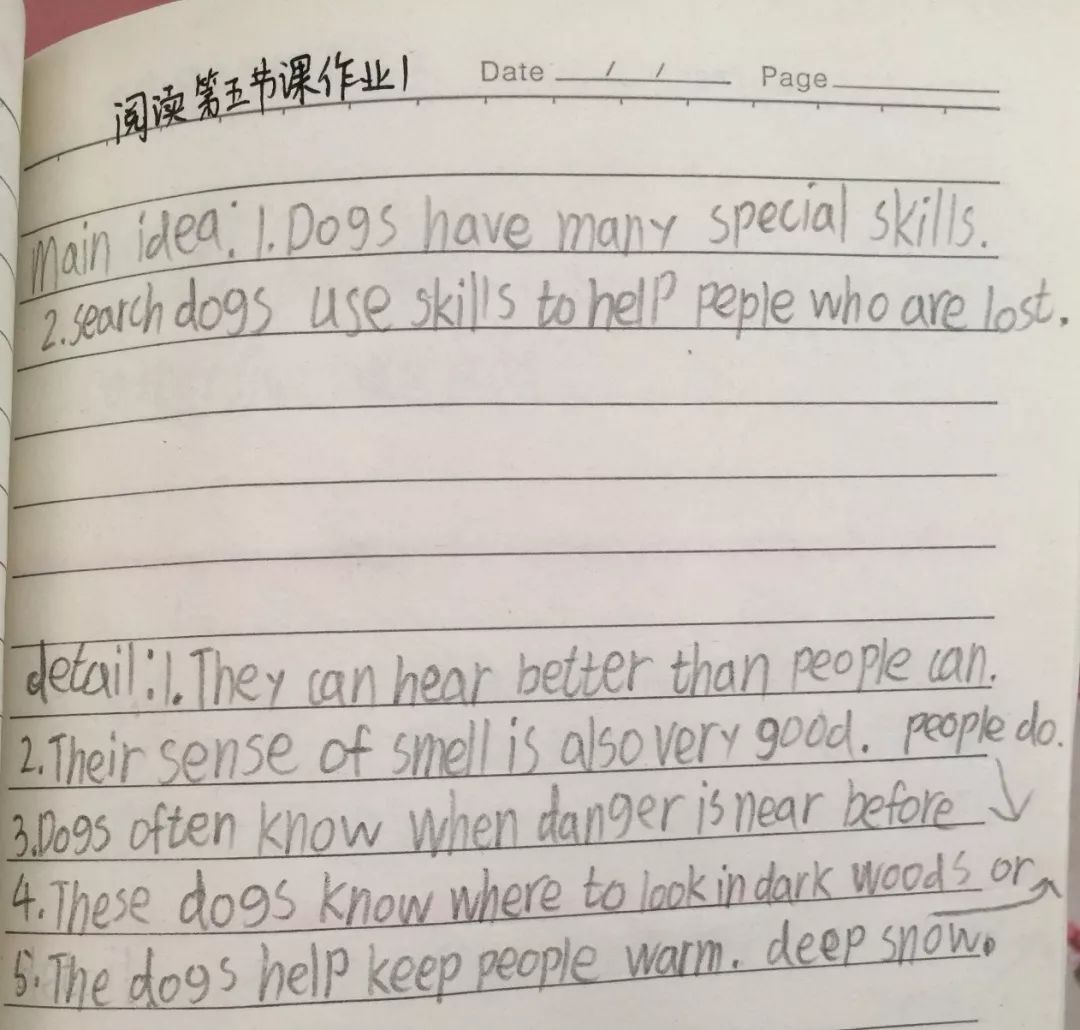 阅读第五节课作业1
Date / / Page
Main idea: 1. Dogs have many special skills.
2. search dogs use skills to help peple who are lost.
detail: 1. They can hear better than people can.
2. Their sense of smell is also very good. people do.
3. Dogs often know when danger is near before
4. These dogs know where to look in dark woods or
5. The dogs help keep people warm. deep snow.